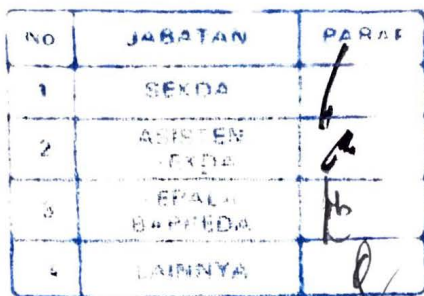 NO JABATAN PARAF
1 SEKDA
2 ASISTEN
SEKDA
3 KEPALA
BAPPEDA
4 LAINNYA